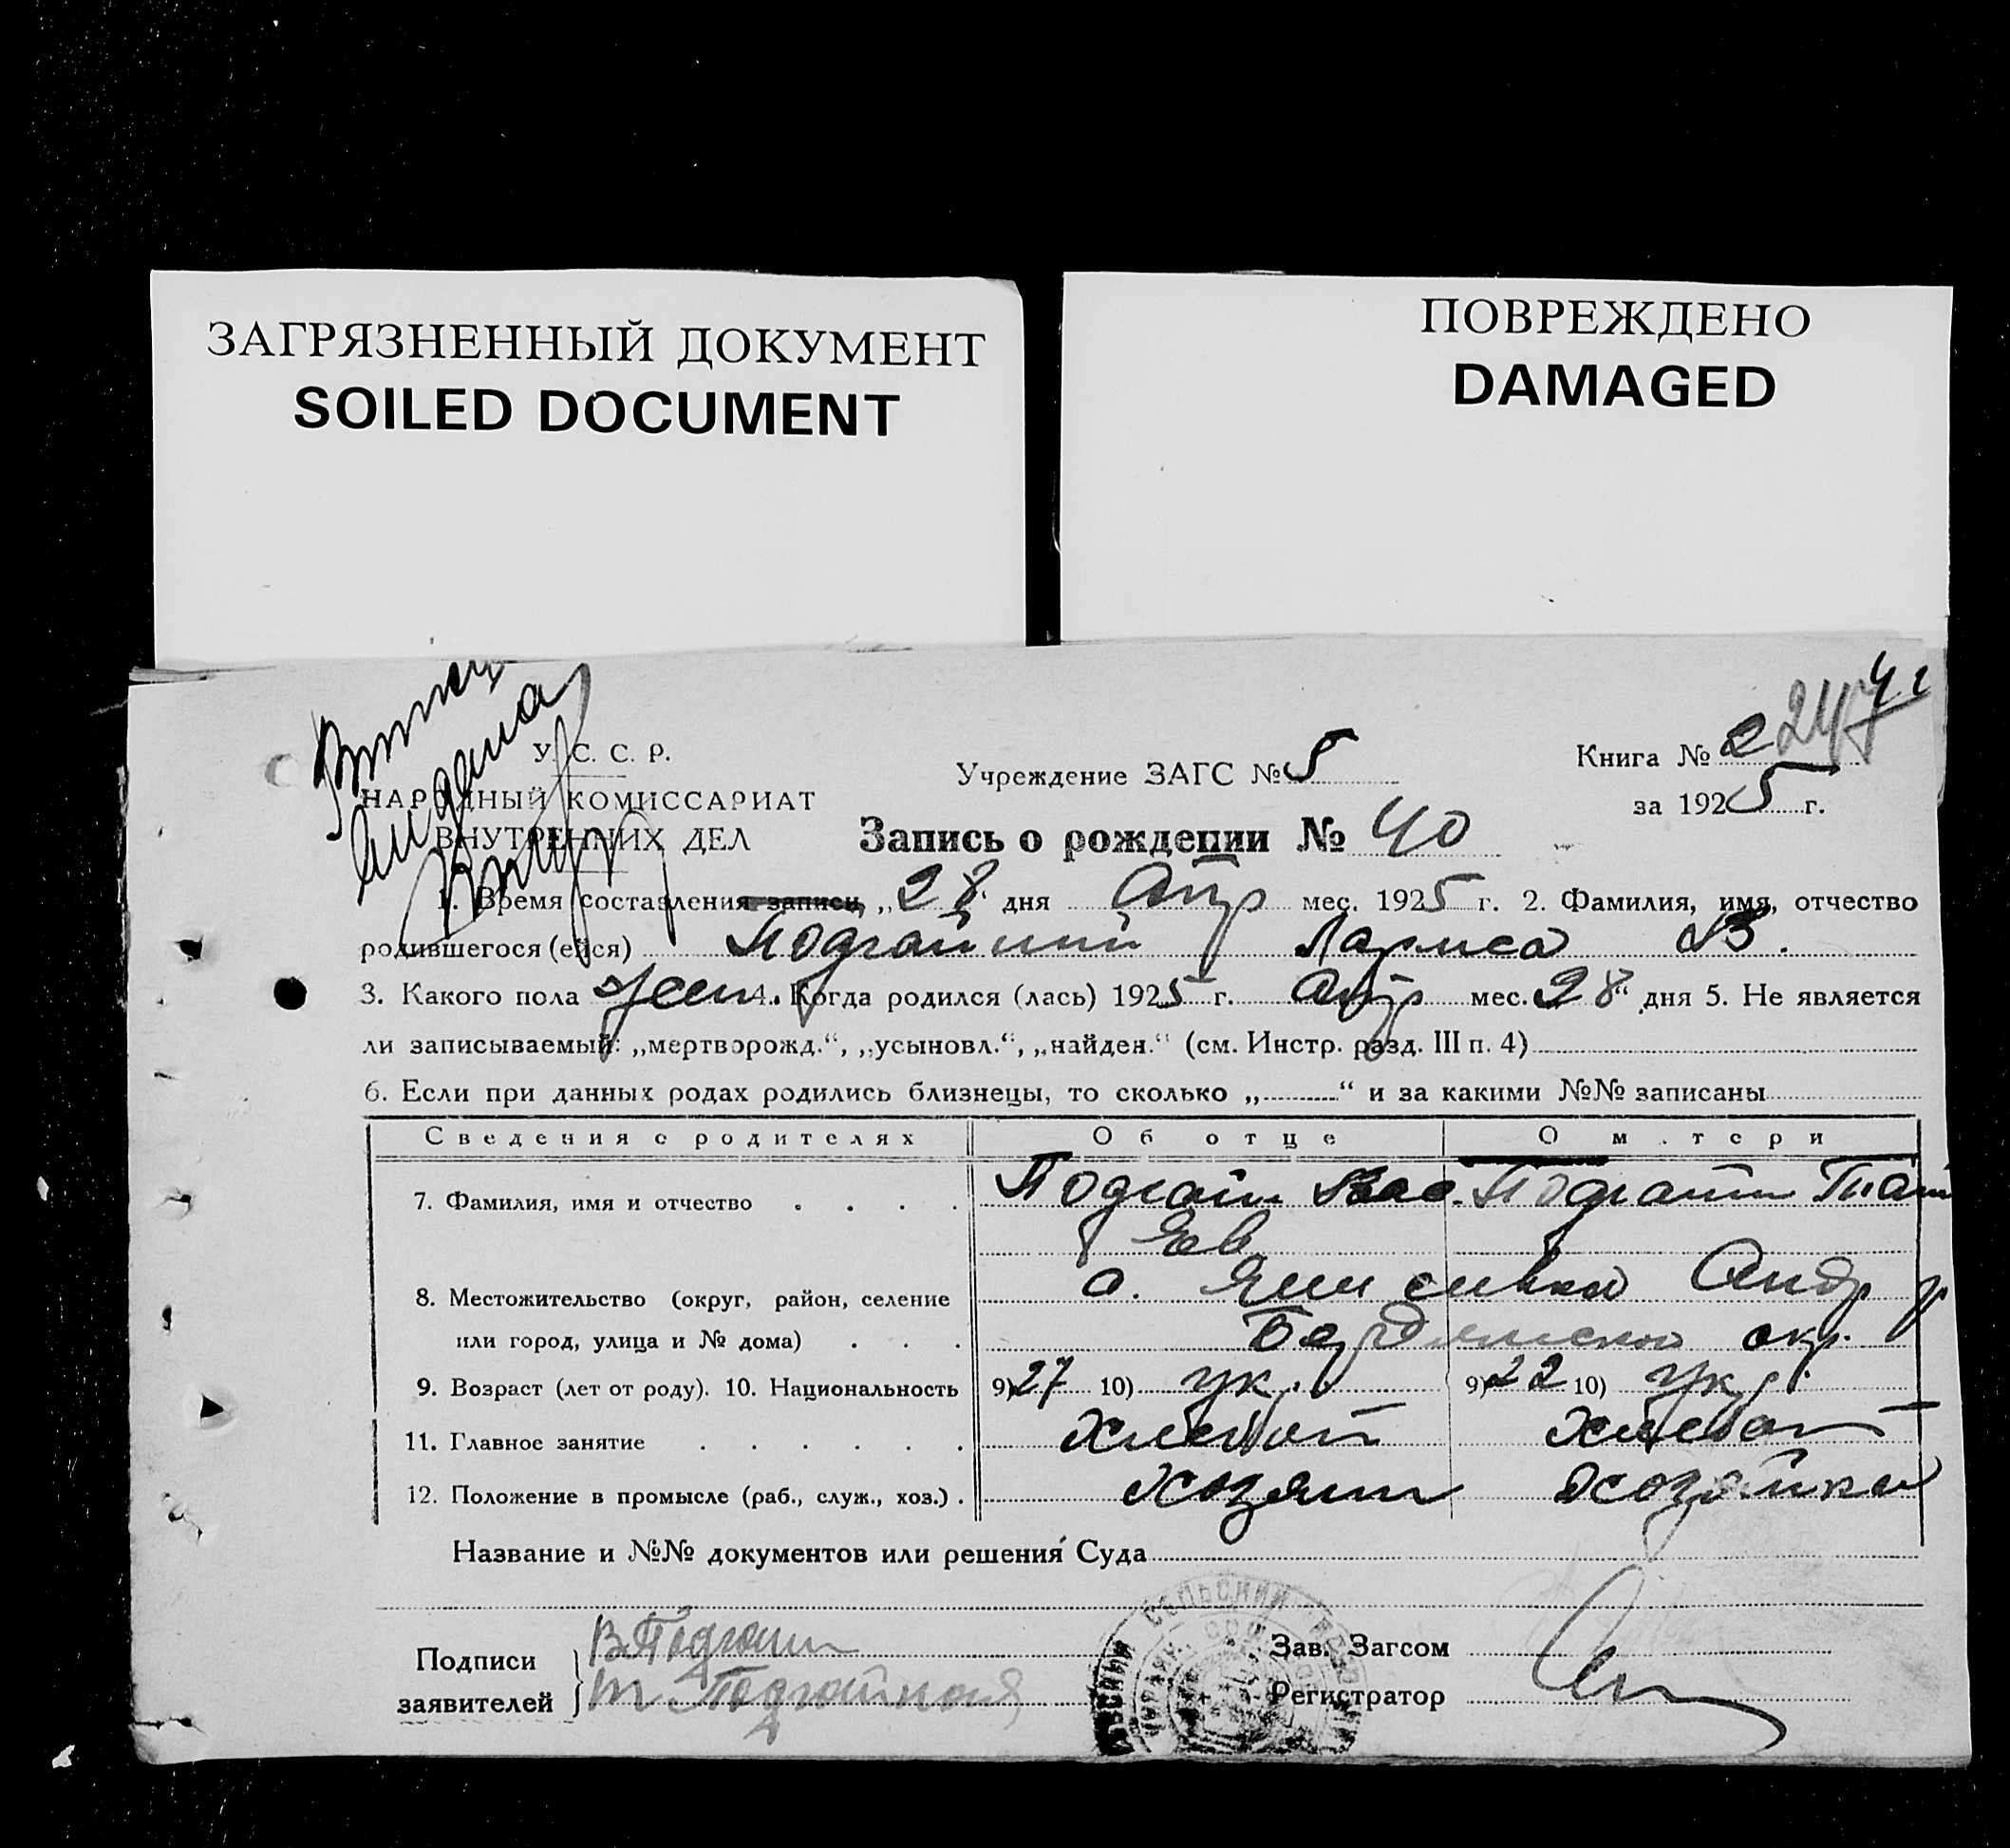 ЗАГРЯЗНЕННЫЙ ДОКУМЕНТ
SOILED DOCUMENT
ПОВРЕЖДЕНО
DAMAGED
выдана
У. С. С. Р.
НАРОДНЫЙ КОМИССАРИАТ
ВНУТРЕННИХ ДЕЛ
Учреждение ЗАГС № 5
Книга № 2 247
за 1925 г.
Запись о рождении № 40
1. Время составления записи „28“ дня Апр мес. 1925 г. 2. Фамилия, имя, отчество
родившегося (ейся) Подгайний Лариса В.
3. Какого пола жен 4. Когда родился (лась) 1925 г. Апр мес. 28“ дня 5. Не является
ли записываемый: „мертворожд.“, „усыновл.“, „найден.“ (см. Инстр. разд. III п. 4)
6. Если при данных родах родились близнецы, то сколько „ “ и за какими №№ записаны
Сведения о родителях Об отце О м.тери
7. Фамилия, имя и отчество Подгайн Вас. Подгайн Тат
Ев
8. Местожительство (округ, район, селение с. Андр р
или город, улица и № дома) Бердянского окр.
9. Возраст (лет от роду). 10. Национальность 9) 27 10) Укр. 9) 22 10) Укр.
11. Главное занятие Хлебоп Хлебоп
12. Положение в промысле (раб., служ., хоз.) Хозяин Хозяйка
Название и №№ документов или решения Суда
Подписи В Подгайн Зав. Загсом
заявителей Т Подгайная Регистратор
СЕЛЬСКИЙ